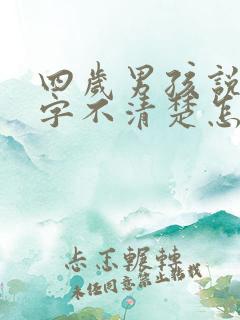 四歲男孩說
字不清楚怎
忐忑輾轉
未任同意禁止転找